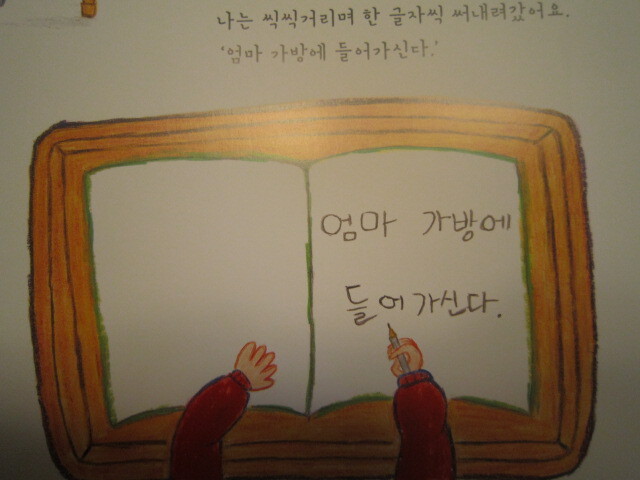 나는 씩씩거리며 한 글자씩 써내려갔어요.
'엄마 가방에 들어가신다.'
엄마 가방에
들어가신다.